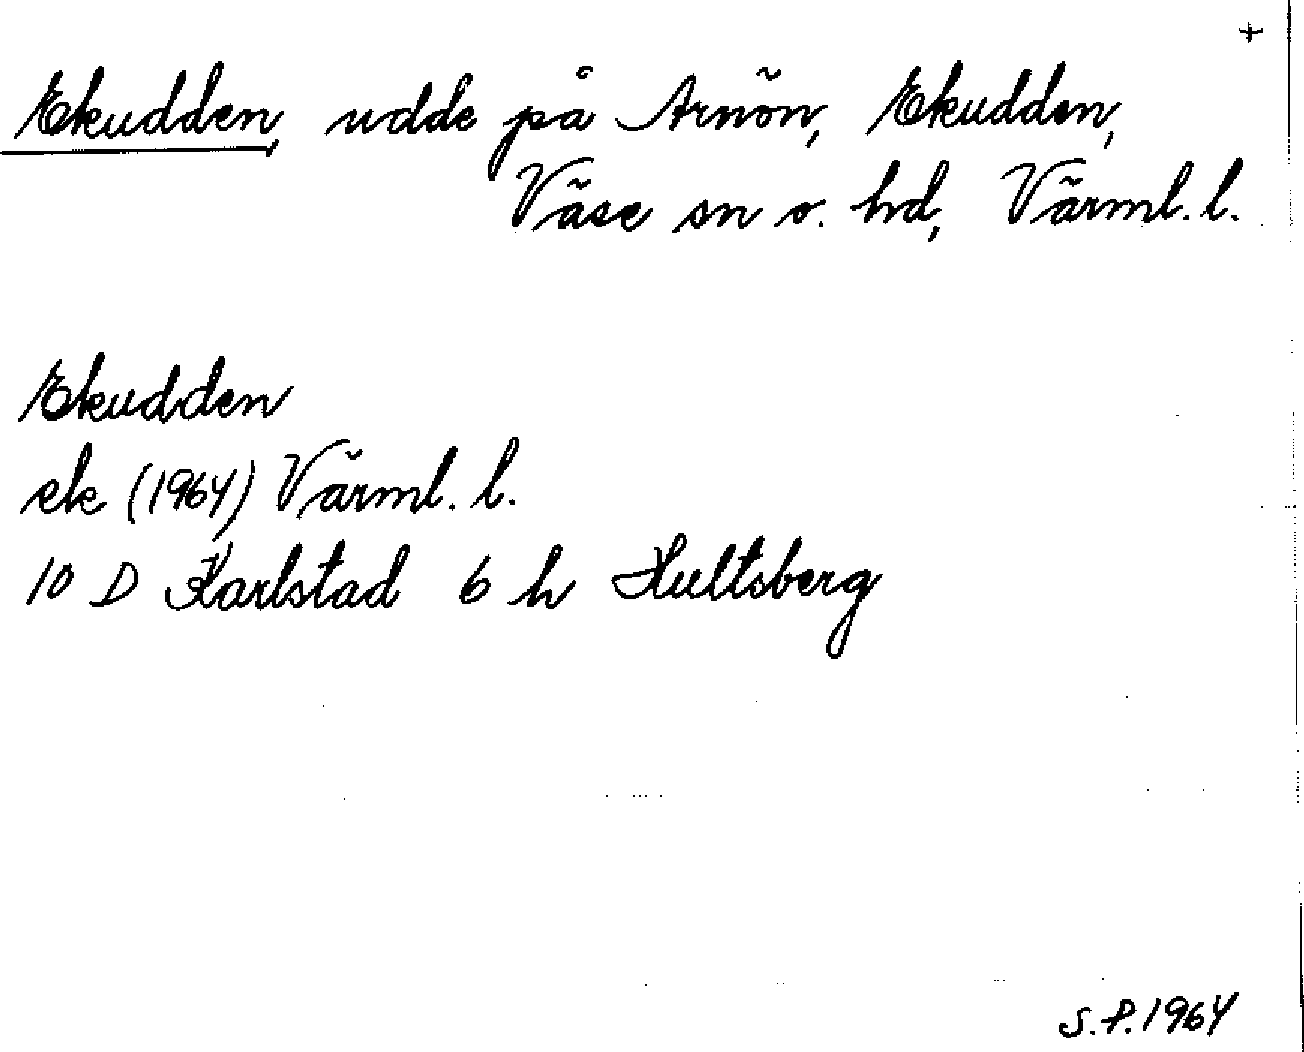 +
Ekudden, udde på Arnön, Ekudden,
Väse sn o. hd, Värml. l.
Ekudden
ek (1964) Värml. l.
10 D Karlstad 6 h Hultsberg
S.P. 1964